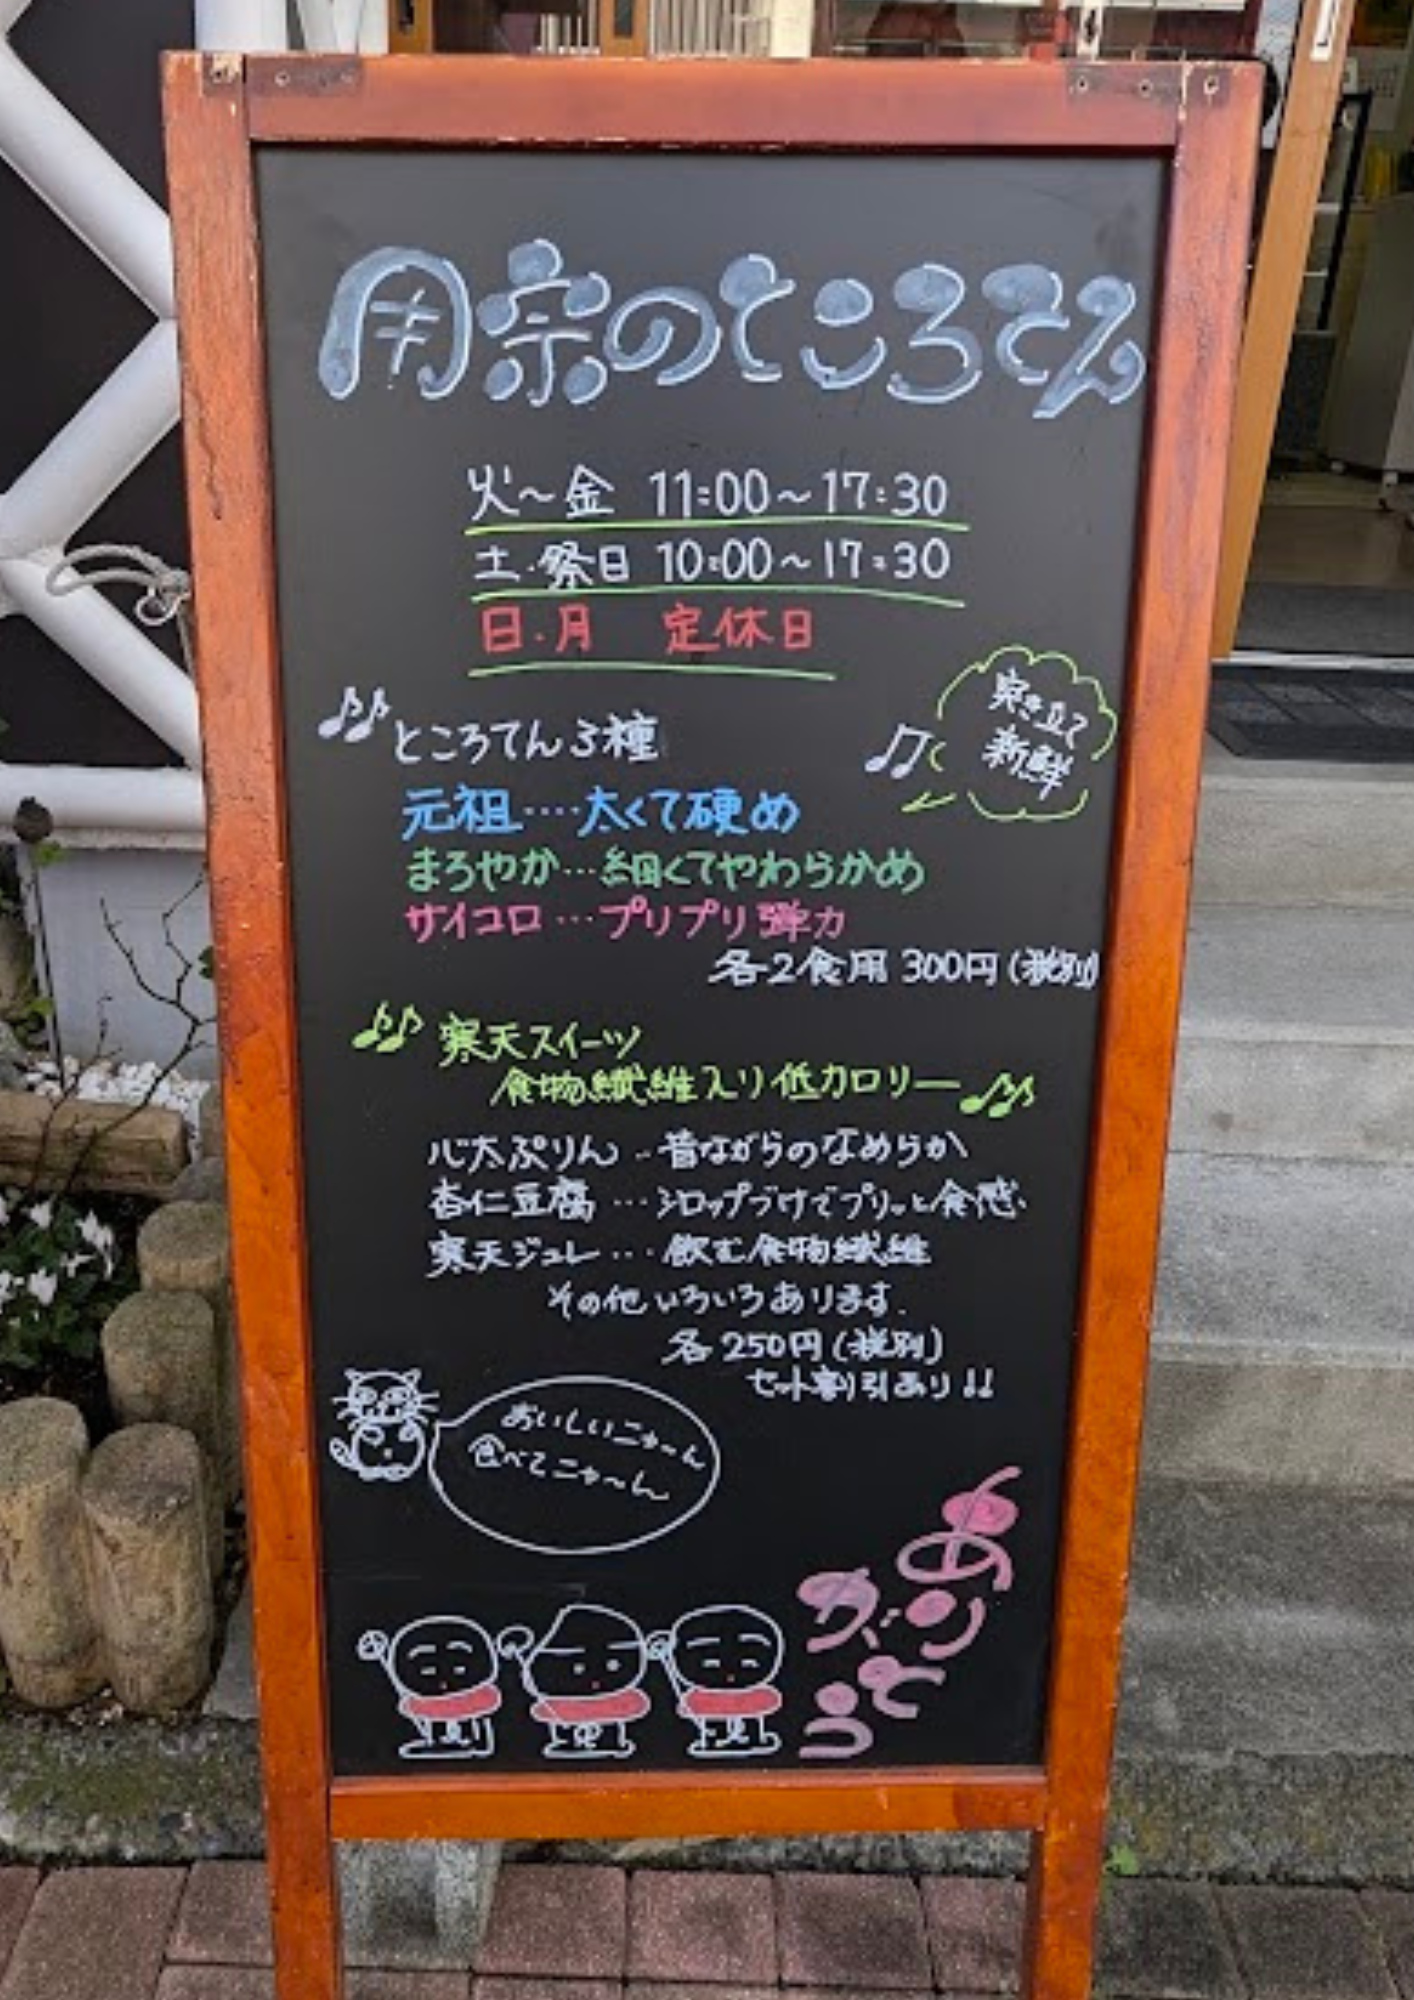 用宗のところてん
火～金 11:00～17:30
土・祭日 10:00～17:30
日・月 定休日
突き立て
新鮮
ところてん3種
元祖‥‥太くて硬め
まろやか…細くてやわらかめ
サイコロ…プリプリ弾力
各2食用 300円(税別)
寒天スイーツ
食物繊維入り低カロリー
心太ぷりん‥昔ながらのなめらか
杏仁豆腐…シロップづけでプリッと食感
寒天ジュレ…飲む食物繊維
その他いろいろあります.
各250円(税別)
セット割引あり!!
おいしいニャ～ん
食べてニャ～ん
ありがとう